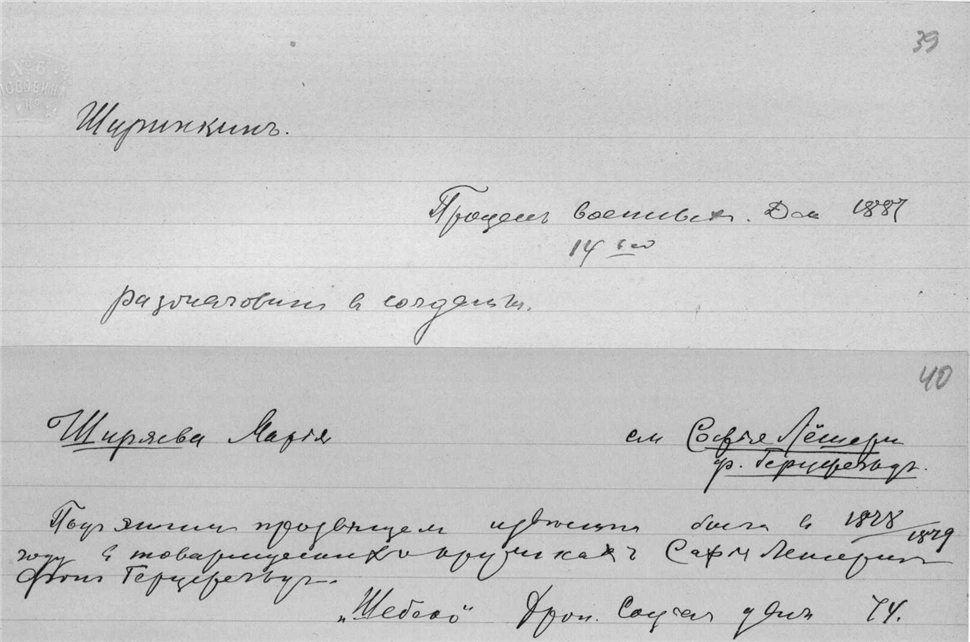 39
Ширинкинъ.
Процессъ военныхъ. Дон 1887
14
разжалованъ в солдаты.
40
Ширяева Марія см Софія Лёшернъ
ф. Герцфельдъ.
Подъ этимъ прозвищем была в 1878/1879
году в товарищескихъ кружкахъ Софія Лешернъ
фонъ Герцфельдъ.
"Шебеко" Хрон. Социал движ 74.